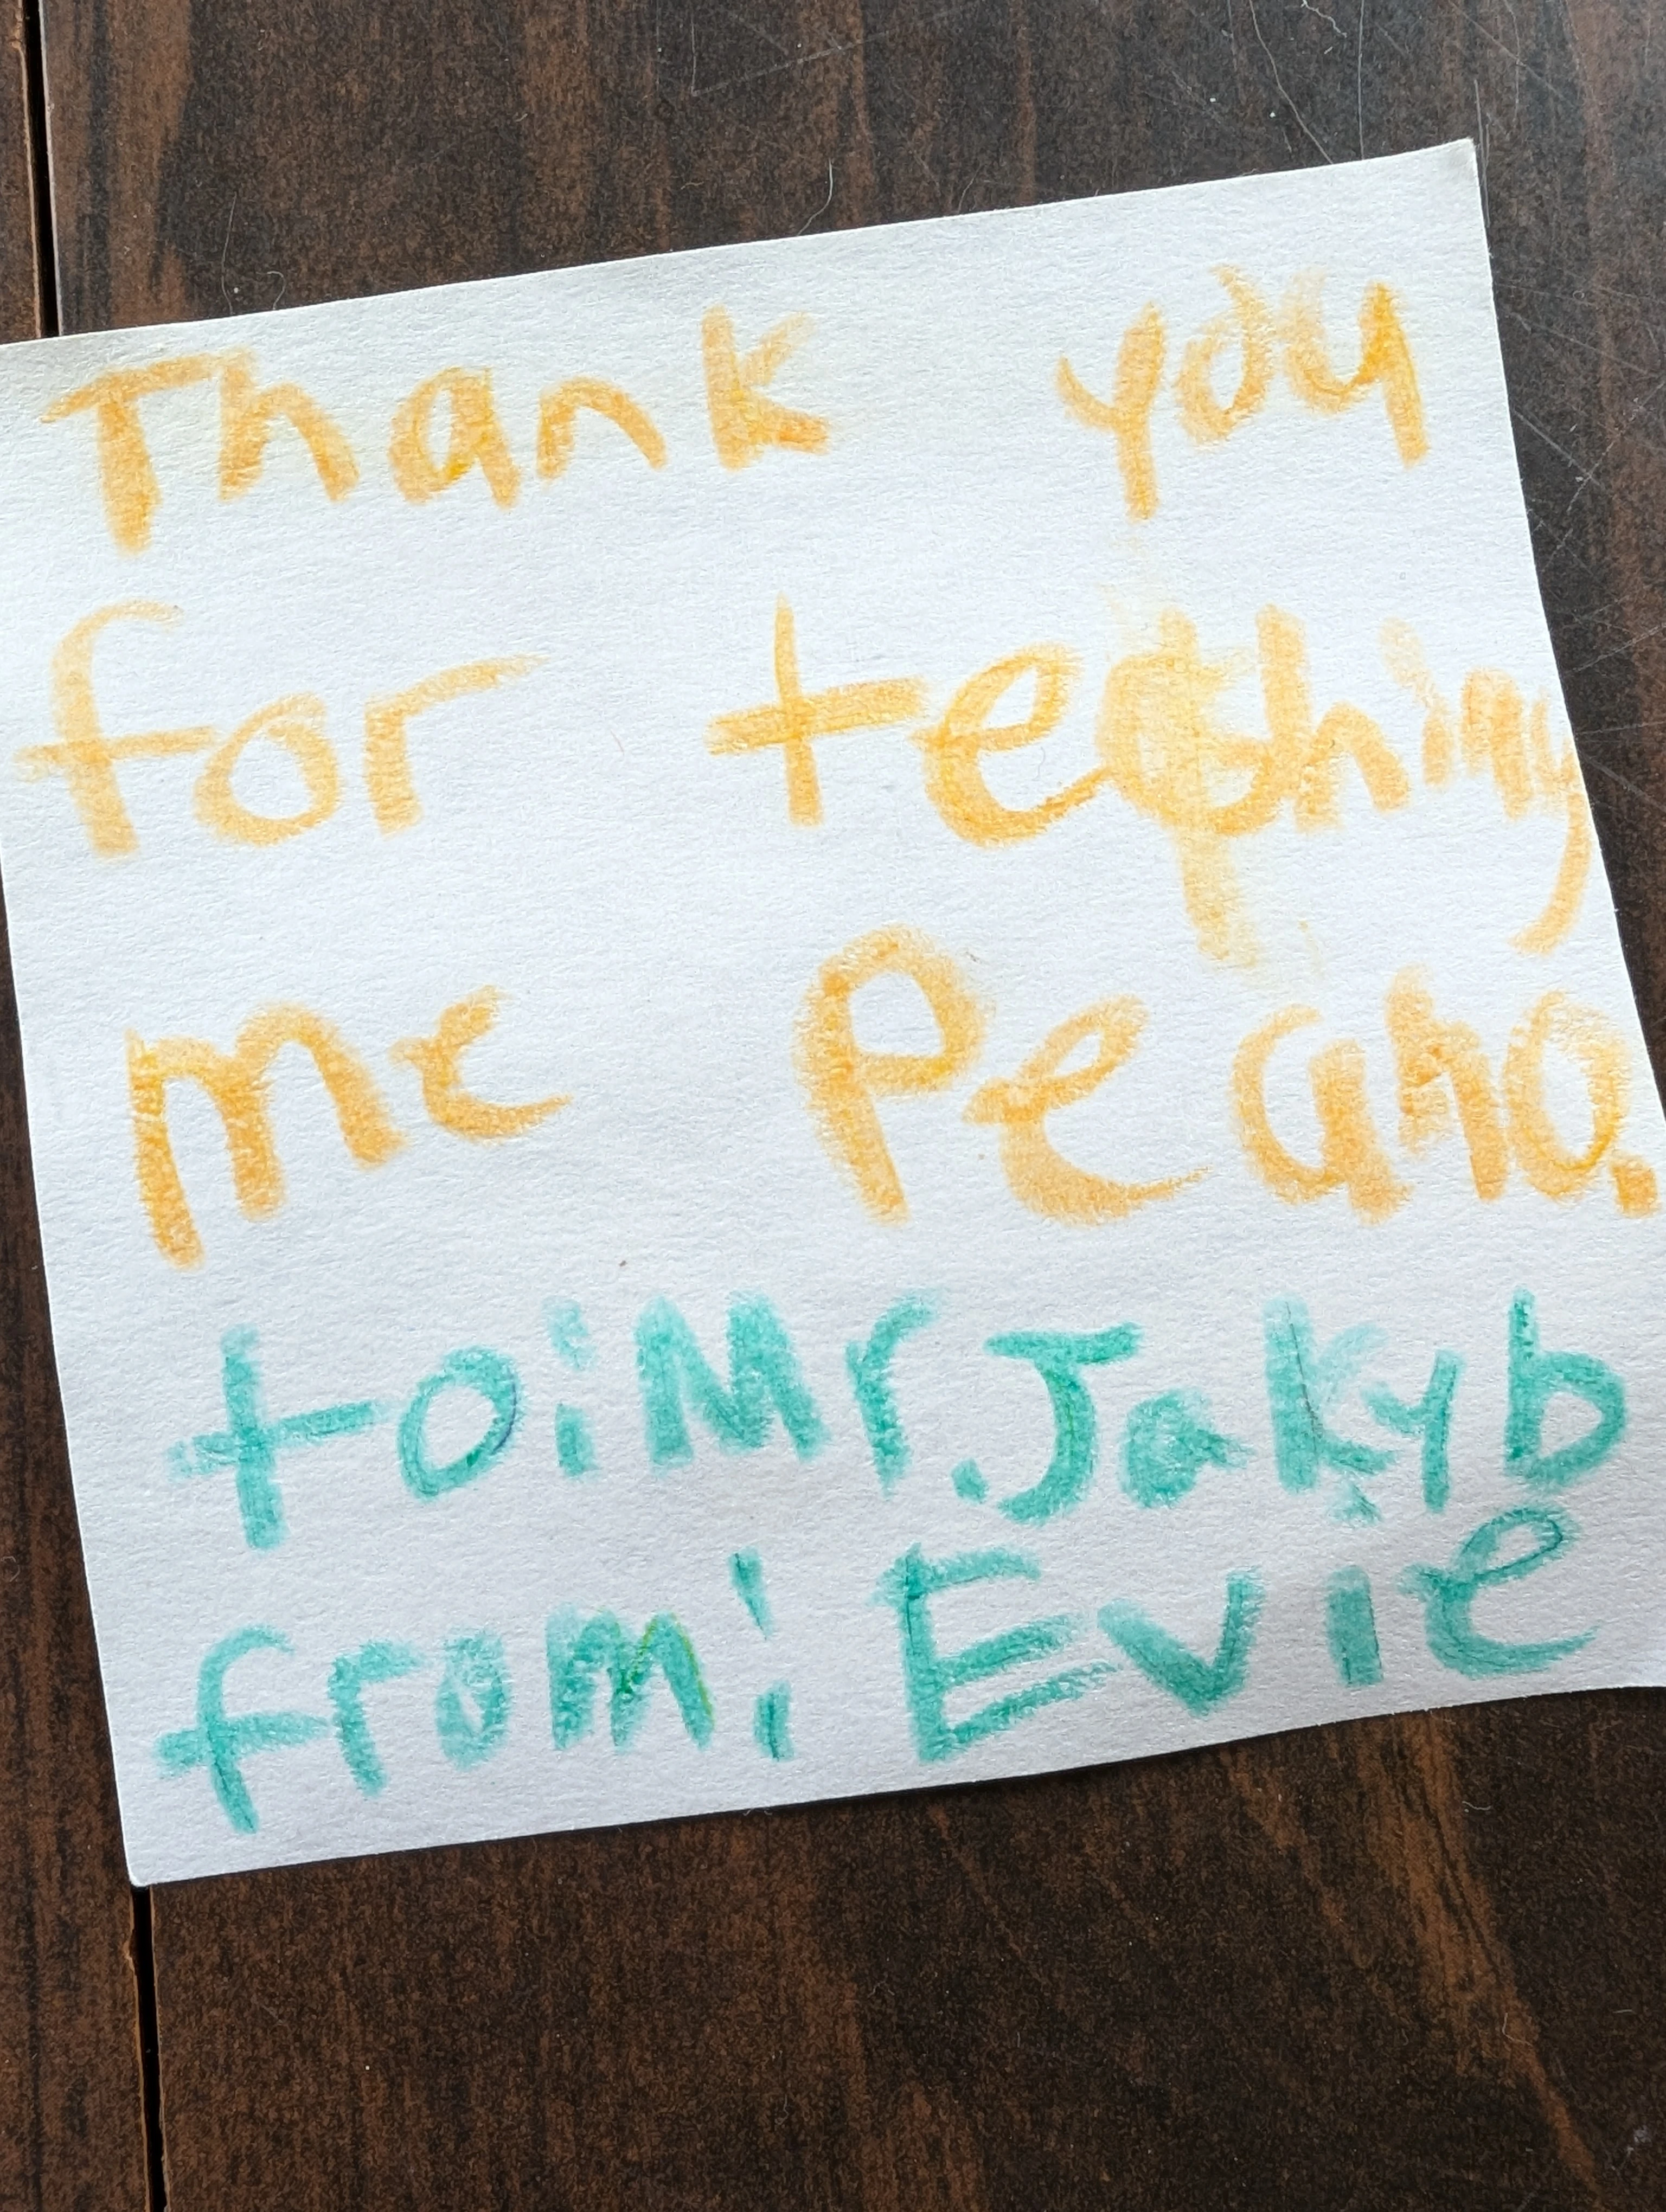 Thank you
for teching
me Peano.
to: Mr. Jakyb
from: Evie